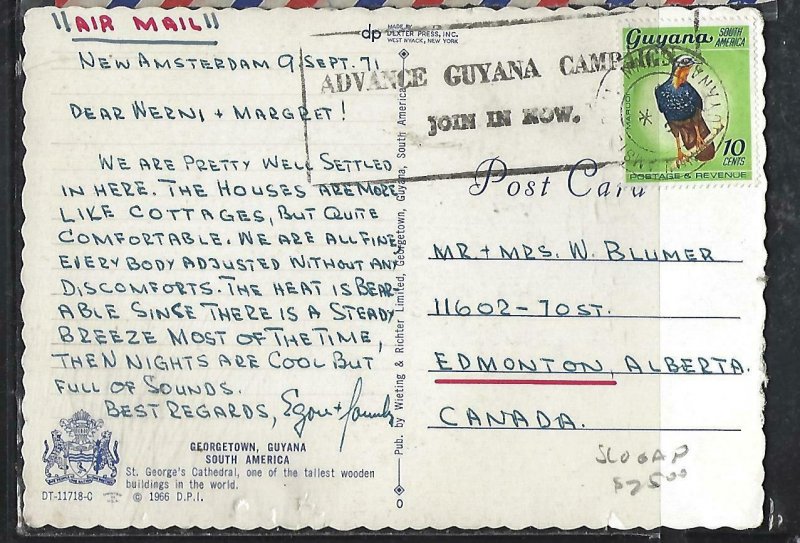 "AIR MAIL"
dp MADE BY
DEXTER PRESS, INC.
WEST NYACK, NEW YORK
NEW AMSTERDAM 9 SEPT. 71
DEAR WERNI + MARGRET!
WE ARE PRETTY WELL SETTLED
IN HERE. THE HOUSES ARE MORE
LIKE COTTAGES, BUT QUITE
COMFORTABLE. WE ARE ALL FINE
EVERY BODY ADJUSTED WITHOUT ANY
DISCOMFORTS. THE HEAT IS BEAR-
ABLE SINSE THERE IS A STEADY
BREEZE MOST OF THE TIME,
THEN NIGHTS ARE COOL BUT
FULL OF SOUNDS.
BEST REGARDS, Egon + family
GEORGETOWN, GUYANA
SOUTH AMERICA
St. George's Cathedral, one of the tallest wooden
buildings in the world.
DT-11718-C © 1966 D.P.I.
Pub. by Wieting & Richter Limited, Georgetown, Guyana, South America
ADVANCE GUYANA CAMPAIGN
JOIN IN NOW.
Guyana SOUTH
AMERICA
MARUDI
10
CENTS
POSTAGE & REVENUE
Post Card
MR + MRS. W. BLUMER
11602-70 ST.
EDMONTON, ALBERTA.
CANADA.
SLOGAN
$7500